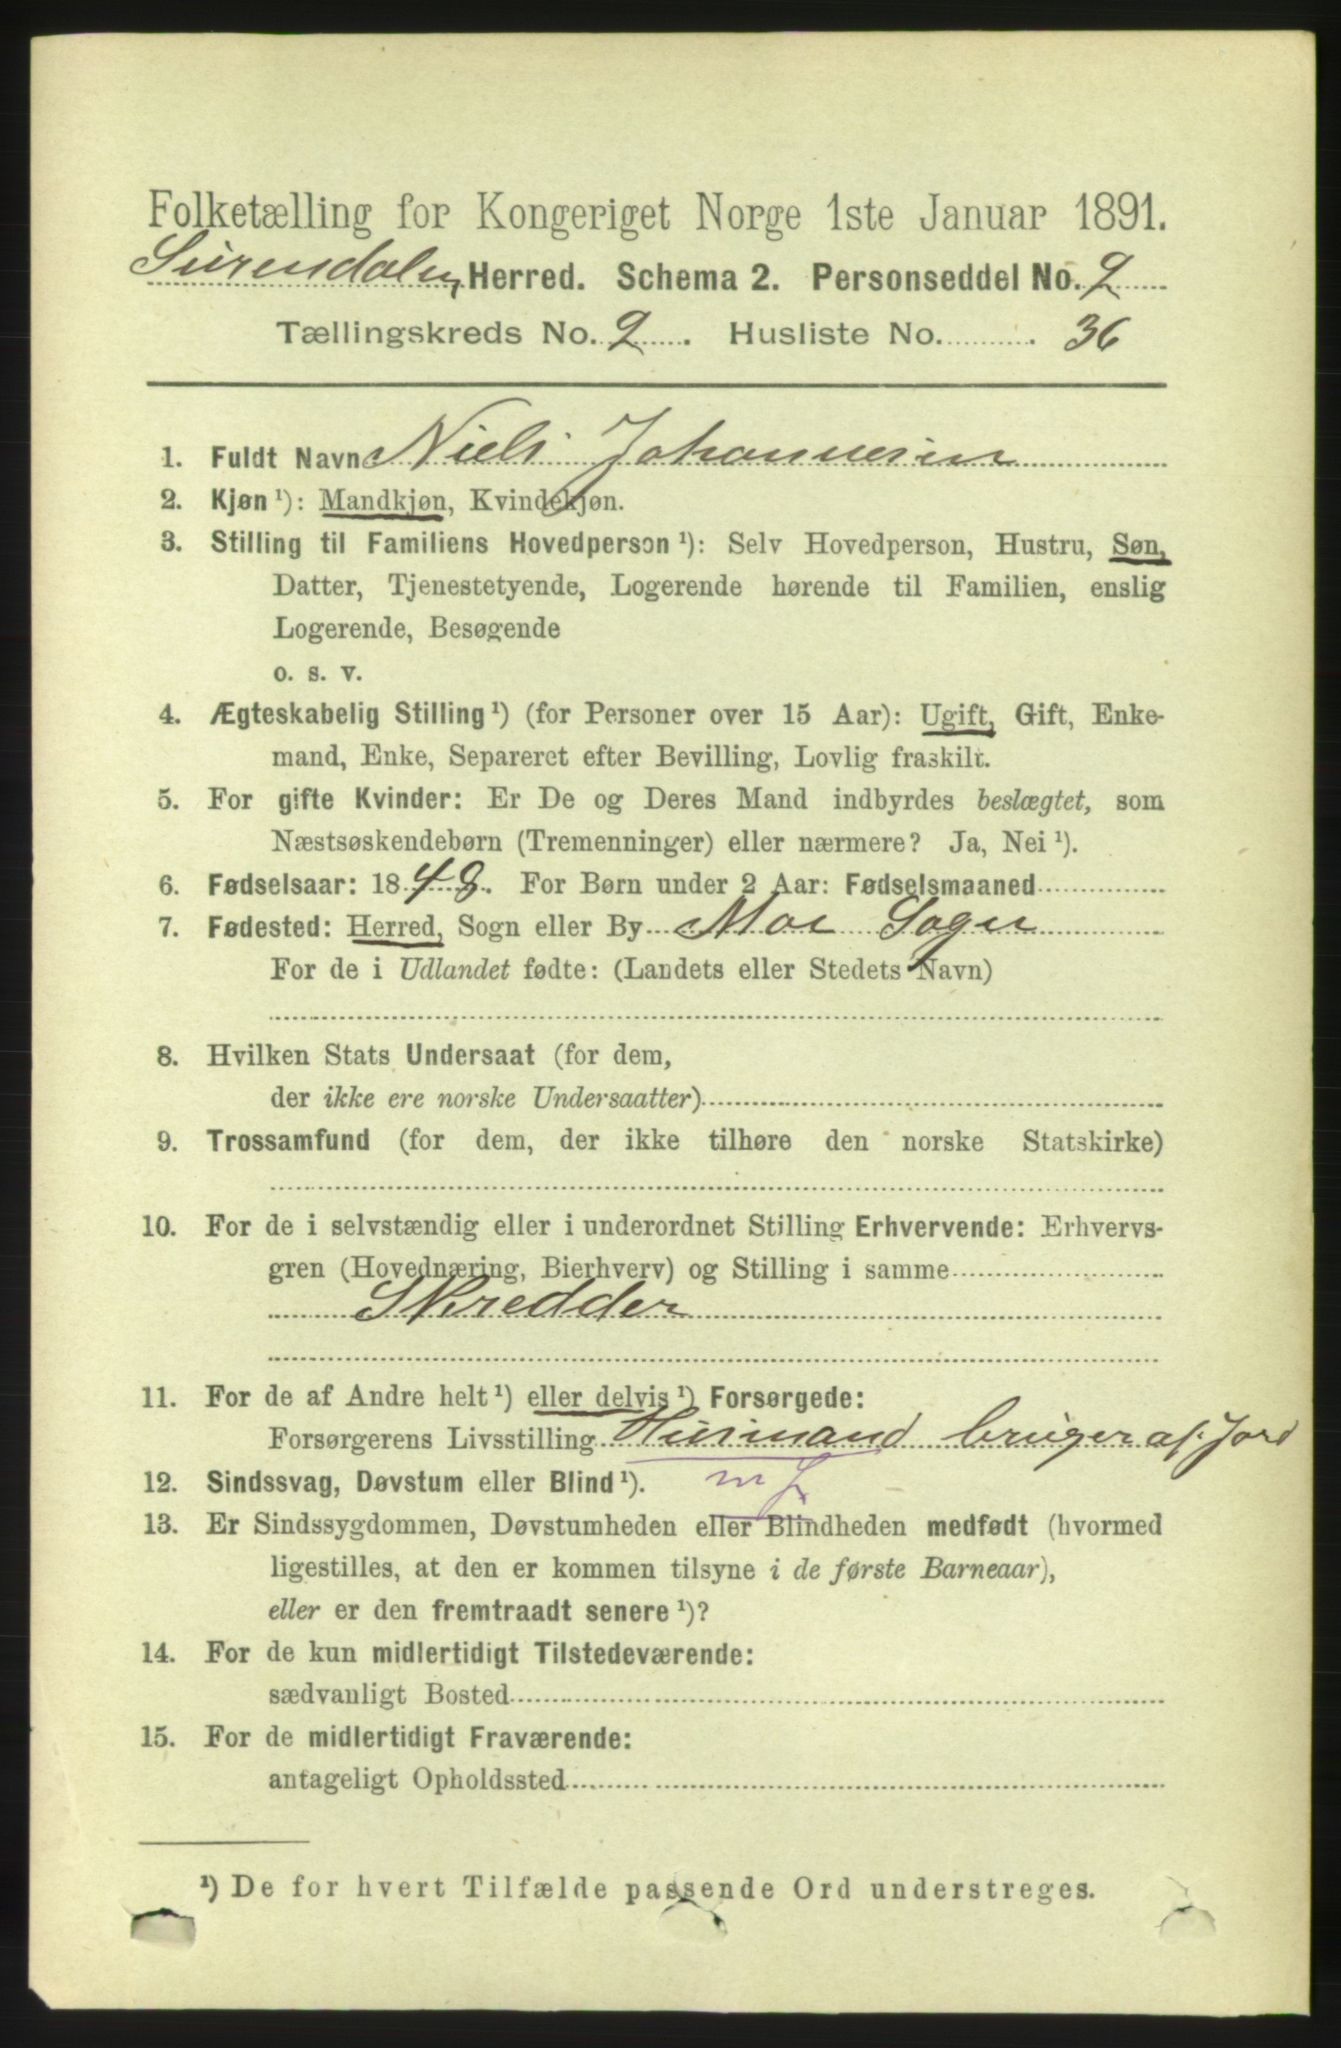 Folketælling for Kongeriget Norge 1ste Januar 1891.
Surendalen Herred. Schema 2. Personseddel No. 2
Tællingskreds No. 2. Husliste No. 36
1. Fuldt Navn Niels Johannesen
2. Kjøn ¹): Mandkjøn, Kvindekjøn.
3. Stilling til Familiens Hovedperson ¹): Selv Hovedperson, Hustru, Søn,
Datter, Tjenestetyende, Logerende hørende til Familien, enslig
Logerende, Besøgende
o. s. v.
4. Ægteskabelig Stilling ¹) (for Personer over 15 Aar): Ugift, Gift, Enke-
mand, Enke, Separeret efter Bevilling, Lovlig fraskilt.
5. For gifte Kvinder: Er De og Deres Mand indbyrdes beslægtet, som
Næstsøskendebørn (Tremenninger) eller nærmere? Ja, Nei ¹).
6. Fødselsaar: 1848. For Børn under 2 Aar: Fødselsmaaned
7. Fødested: Herred, Sogn eller By Moe Sogn
For de i Udlandet fødte: (Landets eller Stedets Navn)
8. Hvilken Stats Undersaat (for dem,
der ikke ere norske Undersaatter)
9. Trossamfund (for dem, der ikke tilhøre den norske Statskirke)
10. For de i selvstændig eller i underordnet Stilling Erhvervende: Erhvervs-
gren (Hovednæring, Bierhverv) og Stilling i samme
Skredder
11. For de af Andre helt ¹) eller delvis ¹) Forsørgede:
Forsørgerens Livsstilling Husmand bruger af Jord
m J
12. Sindssvag, Døvstum eller Blind ¹).
13. Er Sindssygdommen, Døvstumheden eller Blindheden medfødt (hvormed
ligestilles, at den er kommen tilsyne i de første Barneaar),
eller er den fremtraadt senere ¹)?
14. For de kun midlertidigt Tilstedeværende:
sædvanligt Bosted
15. For de midlertidigt Fraværende:
antageligt Opholdssted
¹) De for hvert Tilfælde passende Ord understreges.